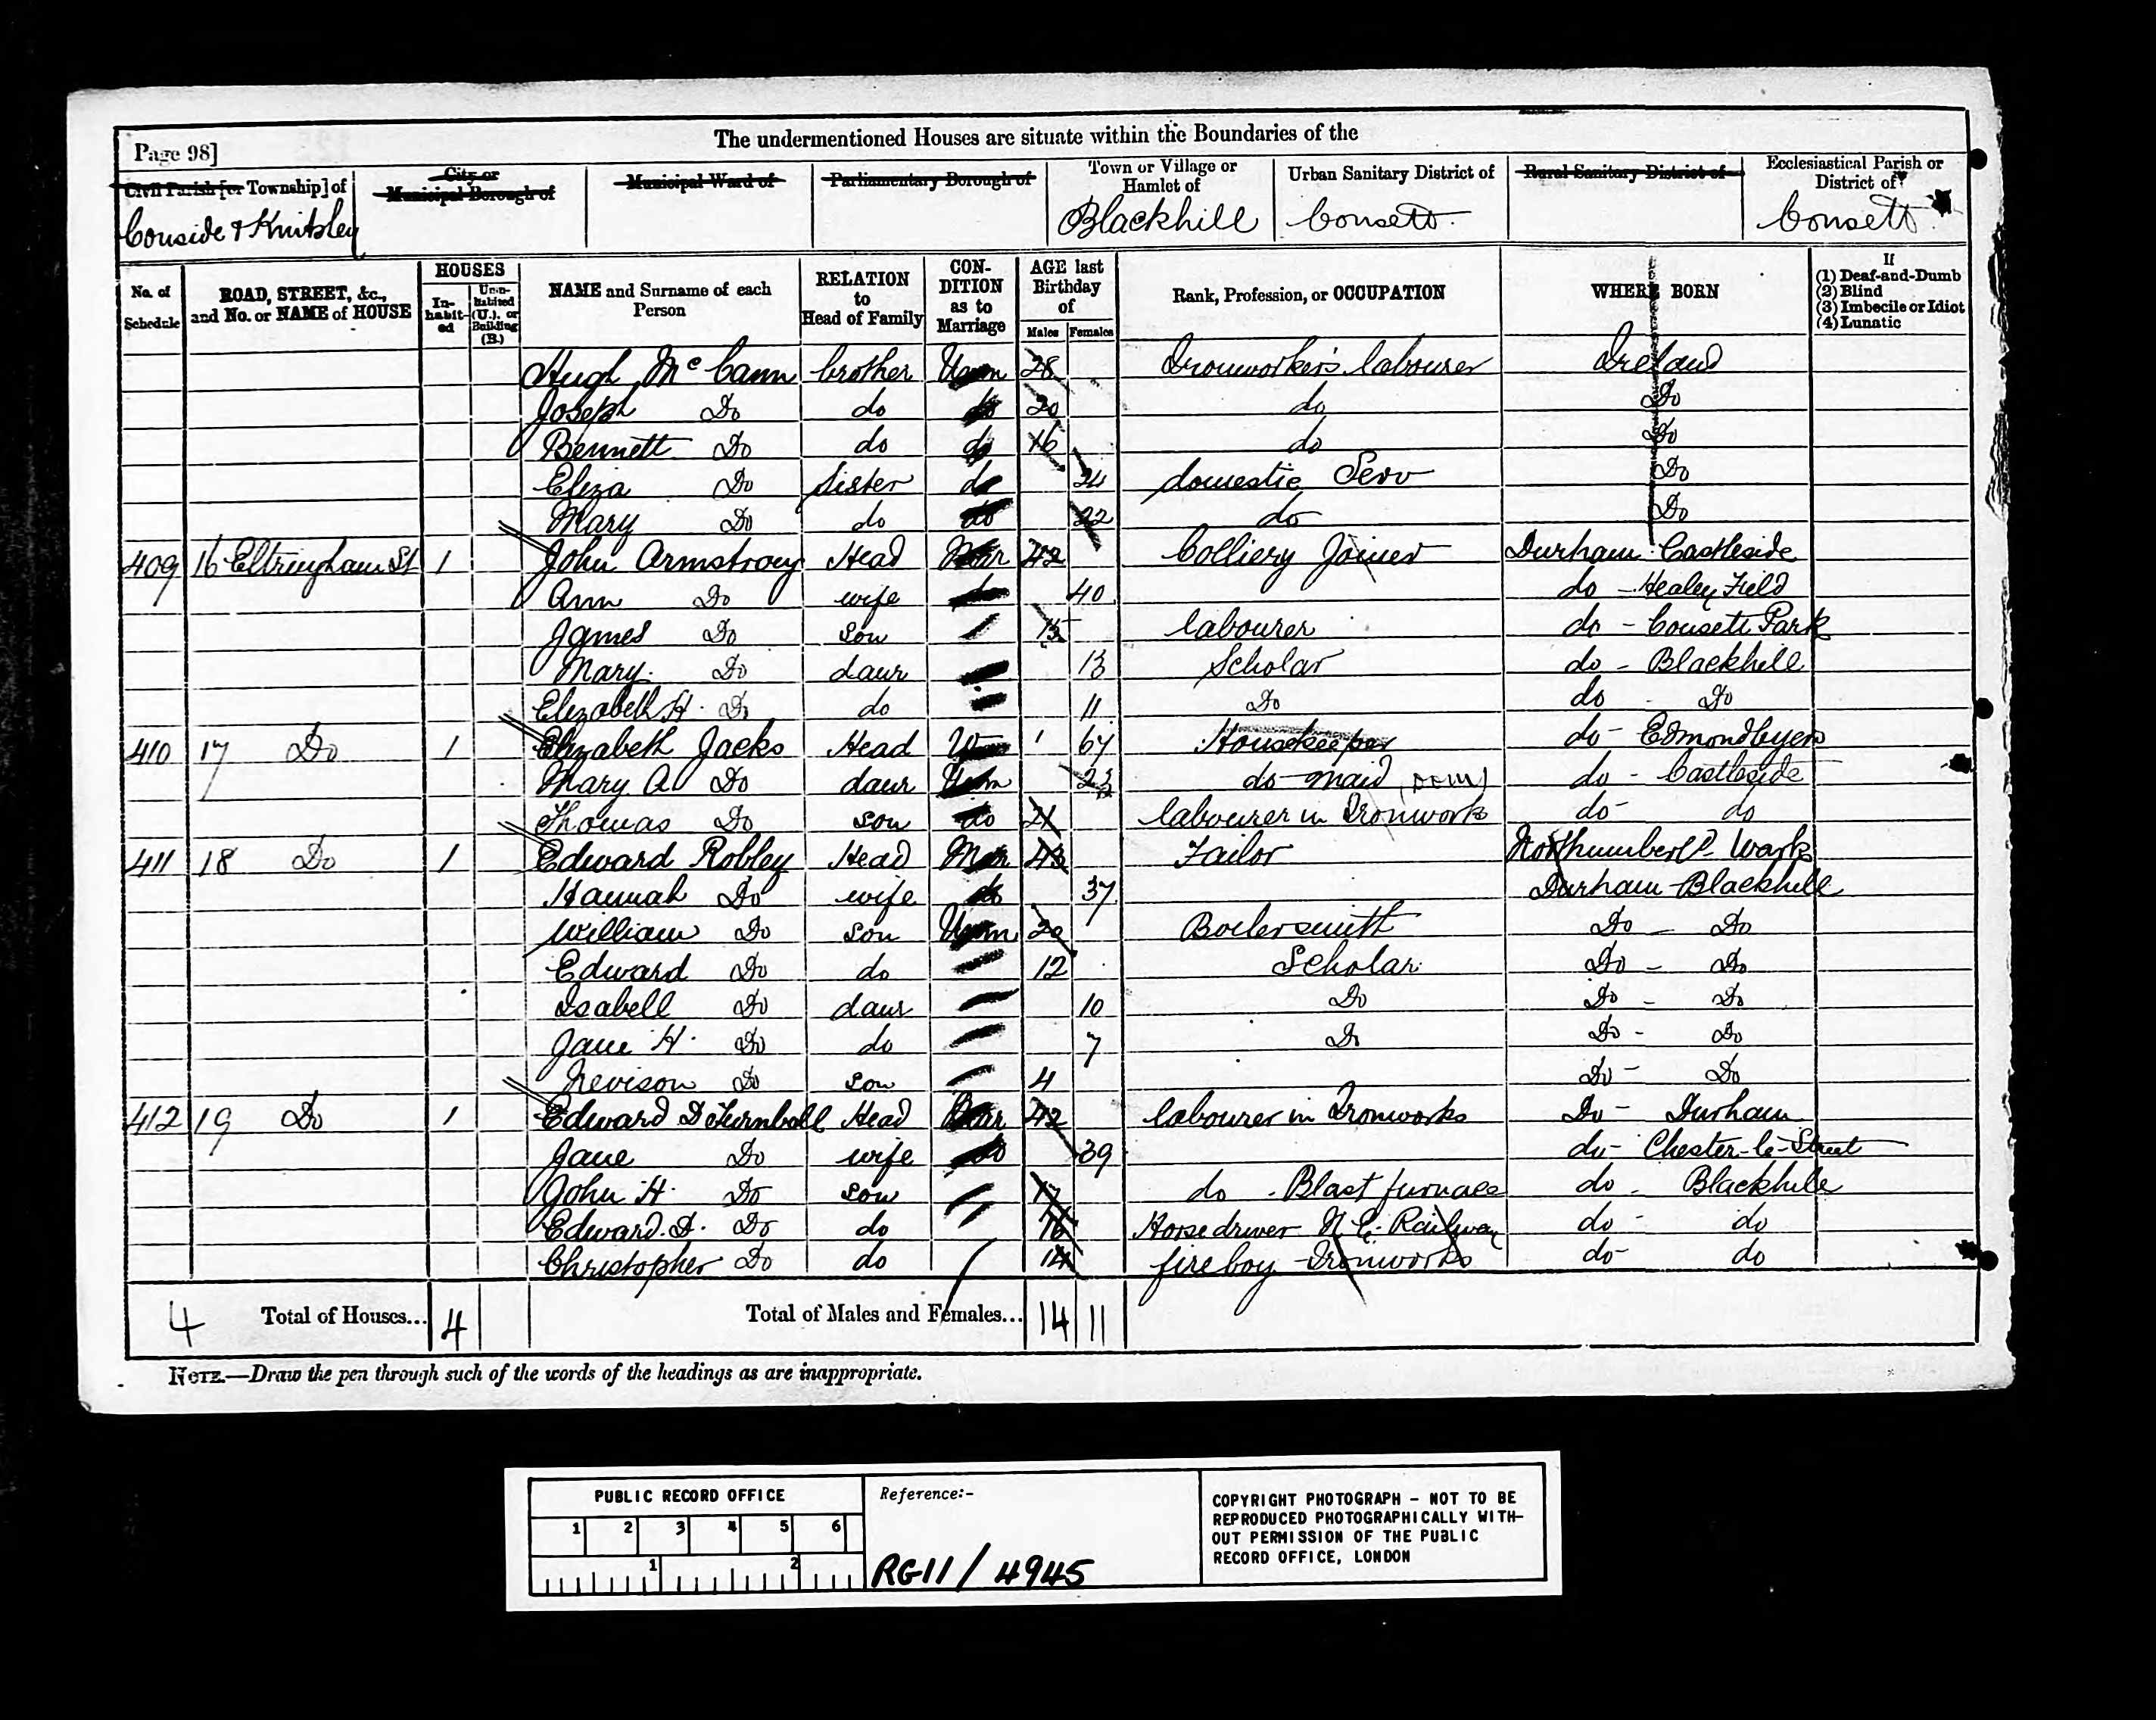 Page 98]
The undermentioned Houses are situate within the Boundaries of the
Civil Parish [or Township] of
City or Municipal Borough of
Municipal Ward of
Parliamentary Borough of
Town or Village or Hamlet of
Urban Sanitary District of
Rural Sanitary District of
Ecclesiastical Parish or District of
Conside & Knitsley Blackhill Consett. Consett.
No. of Schedule
ROAD, STREET, &c., and No. or NAME of HOUSE
HOUSES
In-habit-ed
Unin-habited (U.), or Building (B.)
NAME and Surname of each Person
RELATION to Head of Family
CON-DITION as to Marriage
AGE last Birthday of
Males Females
Rank, Profession, or OCCUPATION
WHERE BORN
If
(1) Deaf-and-Dumb
(2) Blind
(3) Imbecile or Idiot
(4) Lunatic
Hugh McCann brother Unm 28 Ironworker's labourer Ireland
Joseph Do do do 20 do Do
Bennett Do do do 16 do Do
Eliza Do Sister do 24 domestic Serv Do
Mary Do do do 22 do Do
409 16 Eltringham St 1 John Armstrong Head Mar 42 Colliery Joiner Durham Castleside
Ann Do wife do 40 do - Healey Field
James Do Son 15 labourer do - Consett Park
Mary Do daur 13 Scholar do - Blackhill
Elizabeth H. Do do 11 Do do Do
410 17 Do 1 Elizabeth Jacks Head W 67 Housekeeper do - Edmondbyers
Mary A Do daur Unm 23 do maid (DOM) do - Castleside
Thomas Do son do 21 labourer in Ironwork do - do
411 18 Do 1 Edward Robley Head Mar 43 Tailor Northumberld - Wark
Hannah Do wife do 37 Durham - Blackhill
William Do son Unm 20 Boilersmith Do - Do
Edward Do do 12 Scholar Do - Do
Isabell Do daur 10 Do Do - Do
Jane H. Do do 7 Do Do - Do
Nevison Do son 4 Do - Do
412 19 Do 1 Edward D Turnball Head Mar 42 labourer in Ironworks Do - Durham
Jane Do wife do 39 do - Chester-le-Street
John H. Do son 17 do - Blast furnace do - Blackhill
Edward. D. Do do 16 Horse driver N. E. Railway do - do
Christopher Do do 14 fire boy - Ironworks do - do
4 Total of Houses... 4 Total of Males and Females... 14 11
NOTE.—Draw the pen through such of the words of the headings as are inappropriate.
PUBLIC RECORD OFFICE
1 2 3 4 5 6
1 2
Reference:-
RG11/4945
COPYRIGHT PHOTOGRAPH - NOT TO BE
REPRODUCED PHOTOGRAPHICALLY WITH-
OUT PERMISSION OF THE PUBLIC
RECORD OFFICE, LONDON